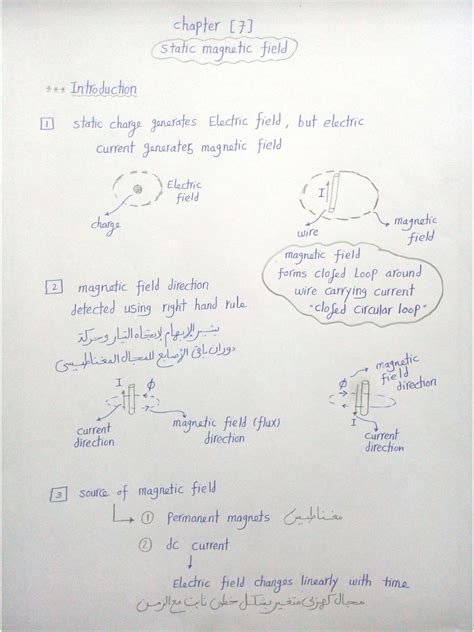 chapter [7]
static magnetic field
*** Introduction
1 static charge generates Electric field, but electric
current generates magnetic field
Electric
field
charge
I
wire
magnetic
field
magnetic field
forms closed Loop around
wire carrying current
"closed circular loop"
2 magnetic field direction
detected using right hand rule
يشير الإبهام لاتجاه التيار وحركة
دوران باقى الأصابع للمجال المغناطيسى
I φ
current
direction
magnetic field (flux)
direction
magnetic
field
direction
φ
I
current
direction
3 source of magnetic field
① Permanent magnets مغناطيس
② dc current
Electric field changes linearly with time
مجال كهربى متغير بشكل خطى ثابت مع الزمن